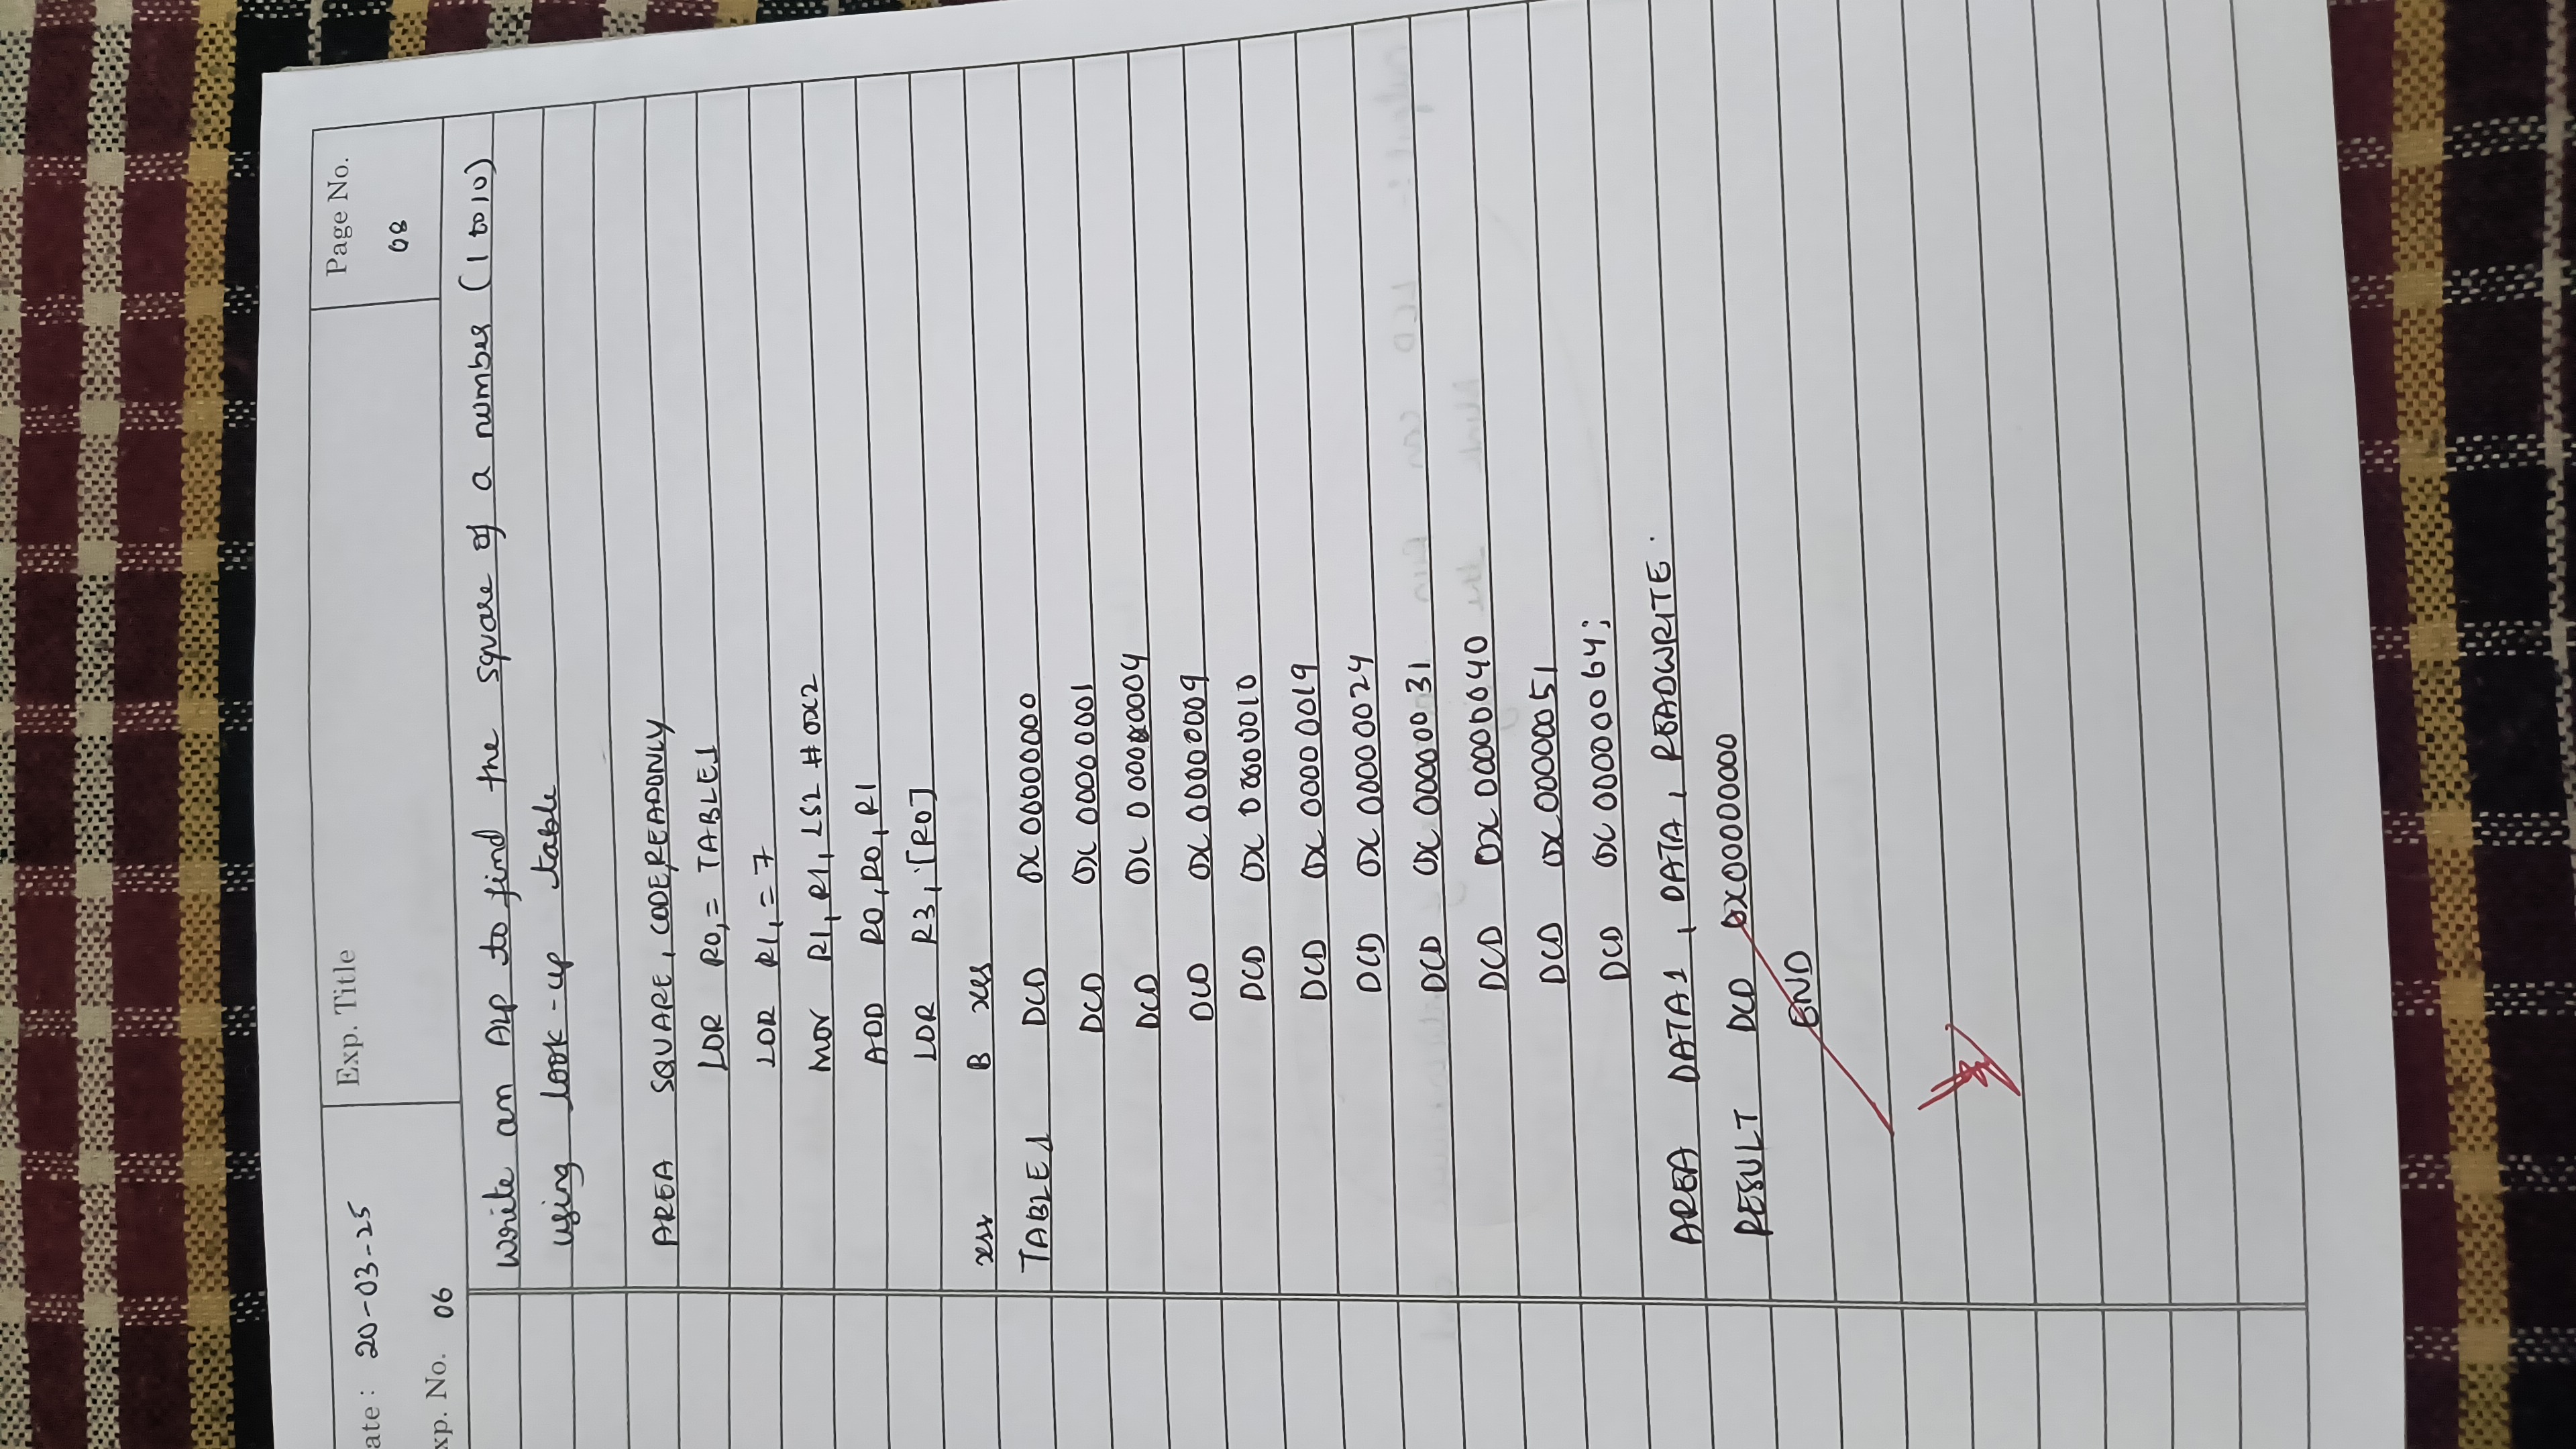 ate : 20-03-25 Exp. Title Page No.
08
xp. No. 06
Write an ALP to find the square of a number (1 to 10)
using look-up table
AREA SQUARE, CODE,READONLY
LDR R0,= TABLE1
LDR R1,= 7
MOV R1, R1, LSL #0x2
ADD R0,R0,R1
LDR R3, [R0]
B
TABLE1 DCD 0x00000000
DCD 0x00000001
DCD 0x000000004
DCD 0x00000009
DCD 0x00000010
DCD 0x00000019
DCD 0x00000024
DCD 0x00000031
DCD 0x00000040
DCD 0x00000051
DCD 0x00000064;
AREA DATA1, DATA, READWRITE.
RESULT DCD 0X00000000
END